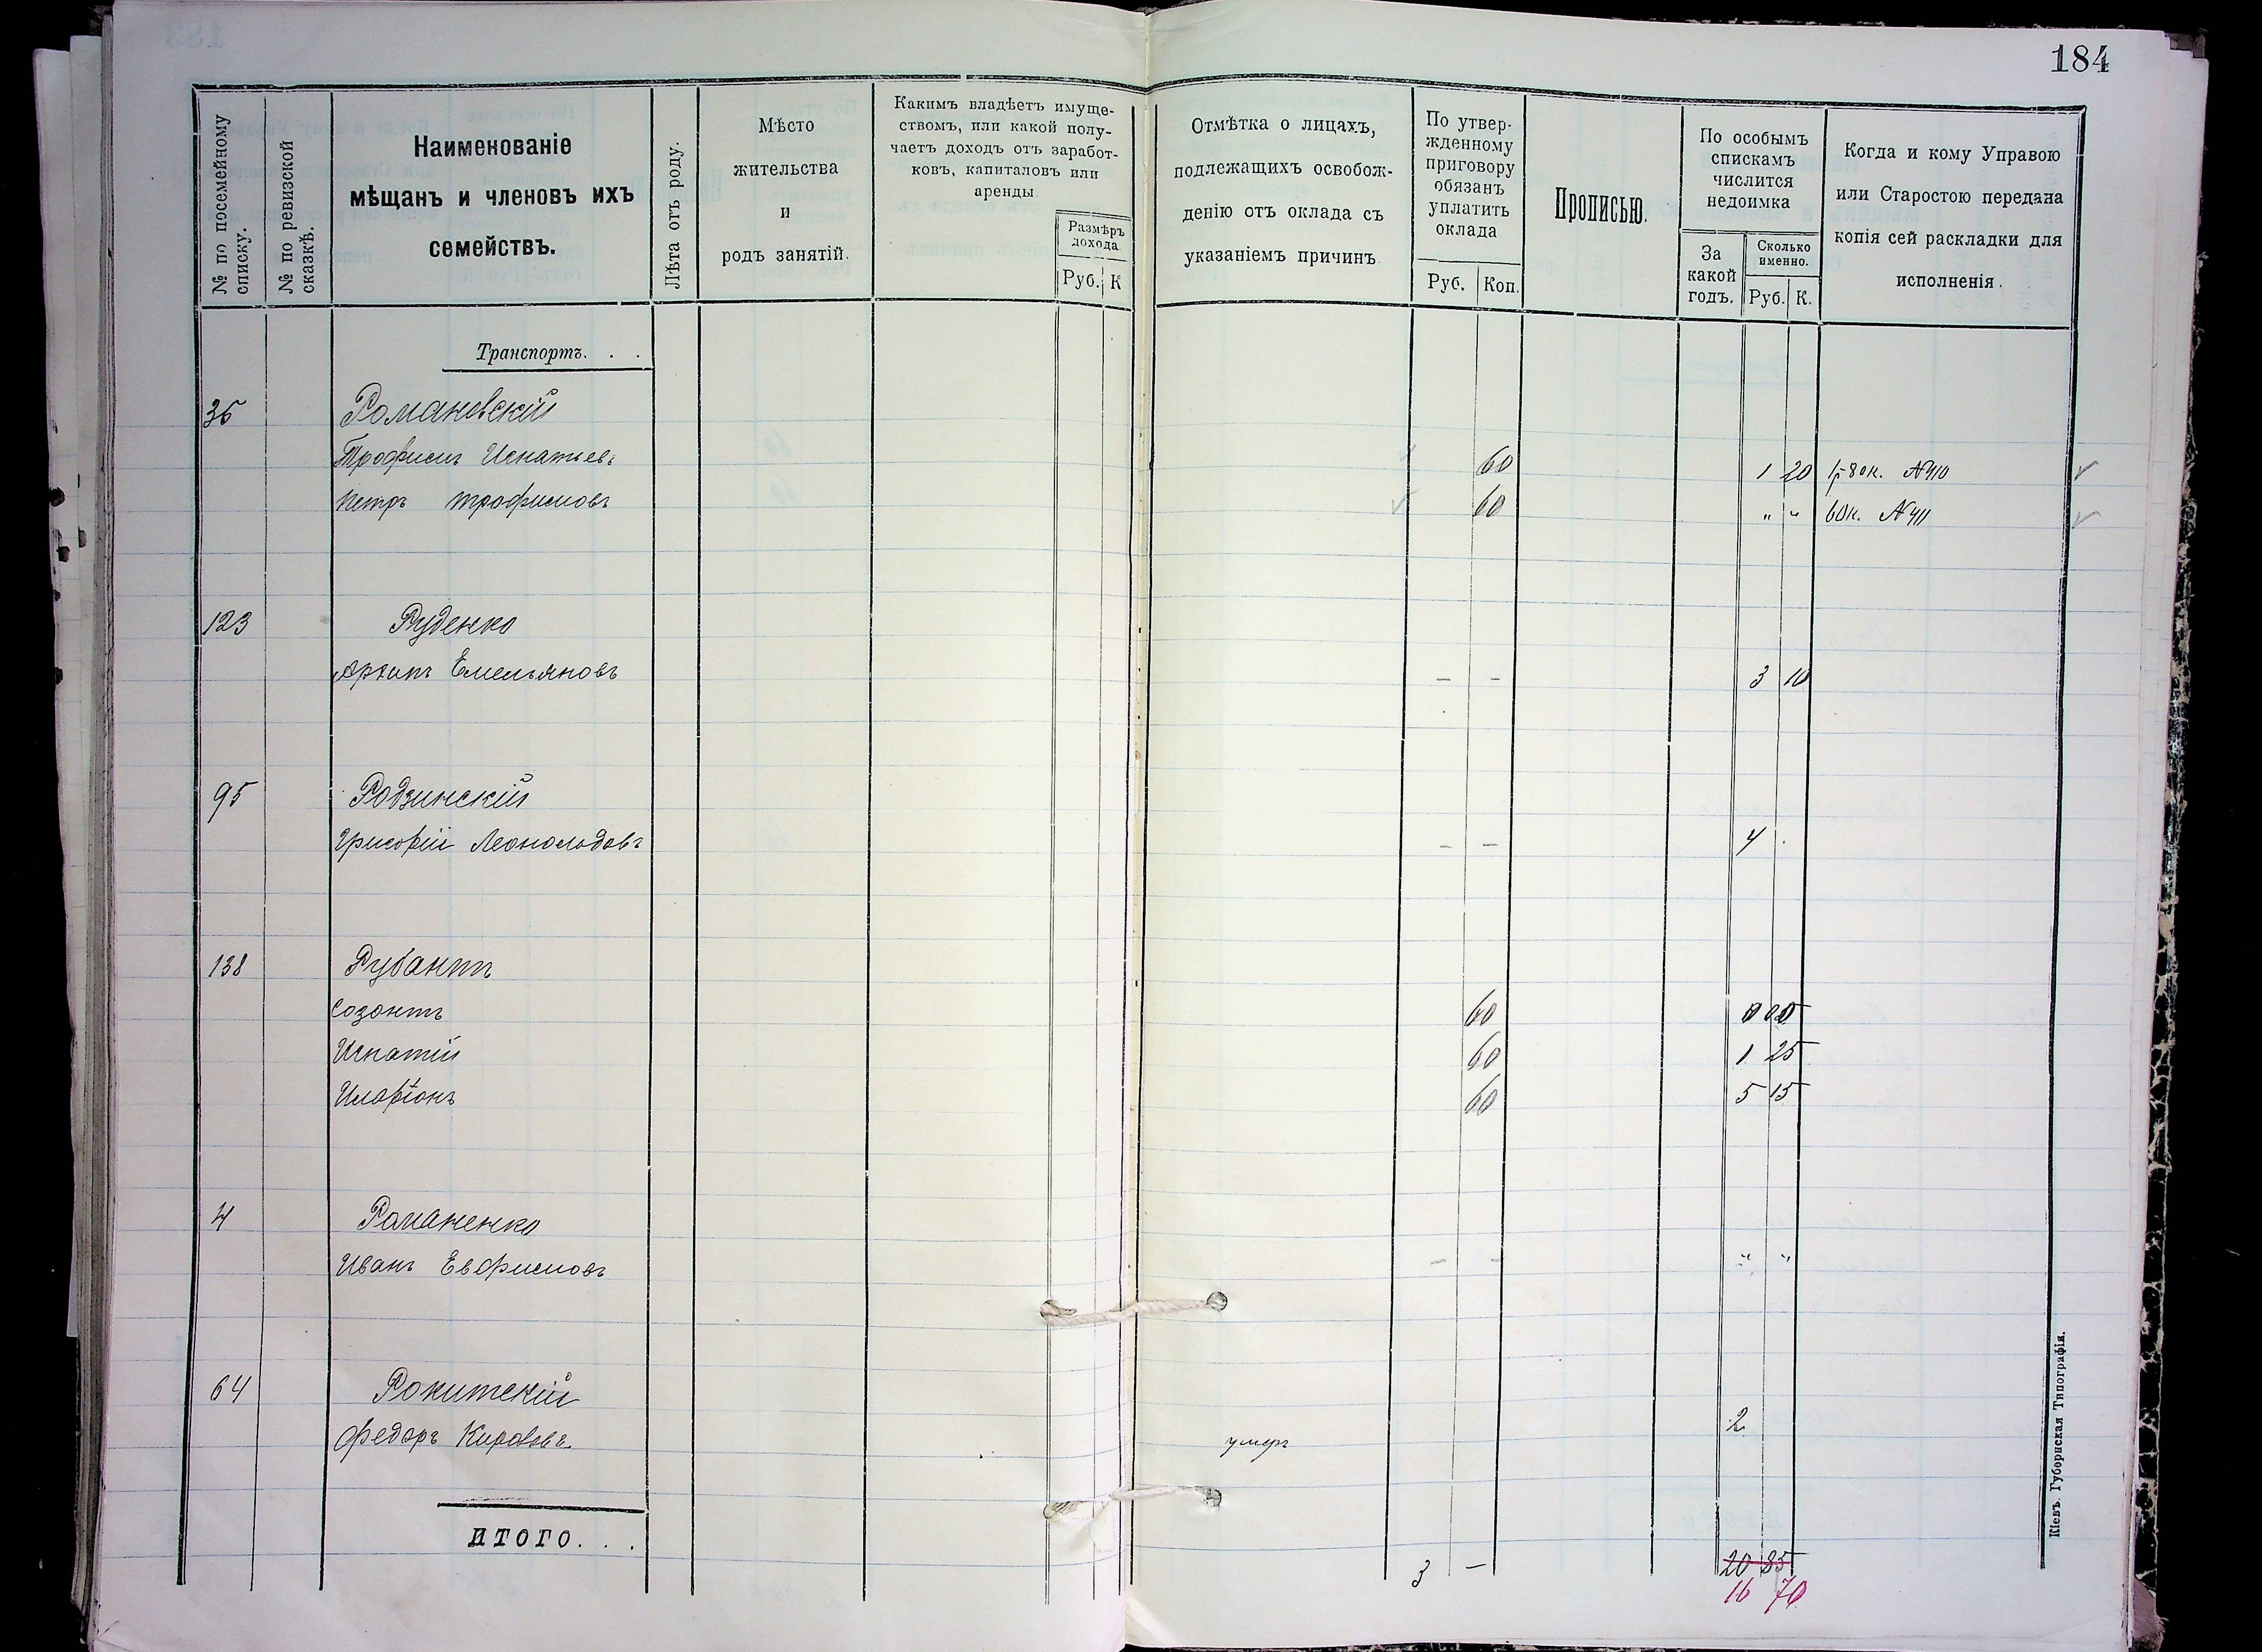 184
№ по посемейному списку.
№ по ревизской сказкѣ.
Наименованіе
мѣщанъ и членовъ ихъ
семействъ.
Лѣта отъ роду.
Мѣсто
жительства
и
родъ занятій.
Какимъ владѣетъ имуще-
ствомъ, или какой полу-
чаетъ доходъ отъ заработ-
ковъ, капиталовъ или
аренды.
Размѣръ
дохода.
Руб. К
Отмѣтка о лицахъ,
подлежащихъ освобож-
денію отъ оклада съ
указаніемъ причинъ.
По утвер-
жденному
приговору
обязанъ
уплатить
оклада
Руб. Коп.
Прописью.
По особымъ
спискамъ
числится
недоимка
За
какой
годъ.
Сколько
именно.
Руб. К.
Когда и кому Управою
или Старостою передана
копія сей раскладки для
исполненія.
Транспортъ. . .
36 Романовскій
Трофимъ Игнатьев. 60 1 20 1р 80к. №410
Петръ Трофимовъ 60 " " 60к. №411
123 Руденко
Архипъ Емельяновъ – – 3 10
95 Родзинскій
Григорій Леопольдовъ – – 4
138 Рубантъ
Созонтъ 60
Игнатій 60 1 25
Иларіонъ 60 5 15
4 Романенко
Иванъ Евфимовъ – – " "
64 Рокитскій
Федоръ Карповъ умеръ 2
ИТОГО. . . 3 – 20 85
16 70
Кіевъ. Губернская Типографія.